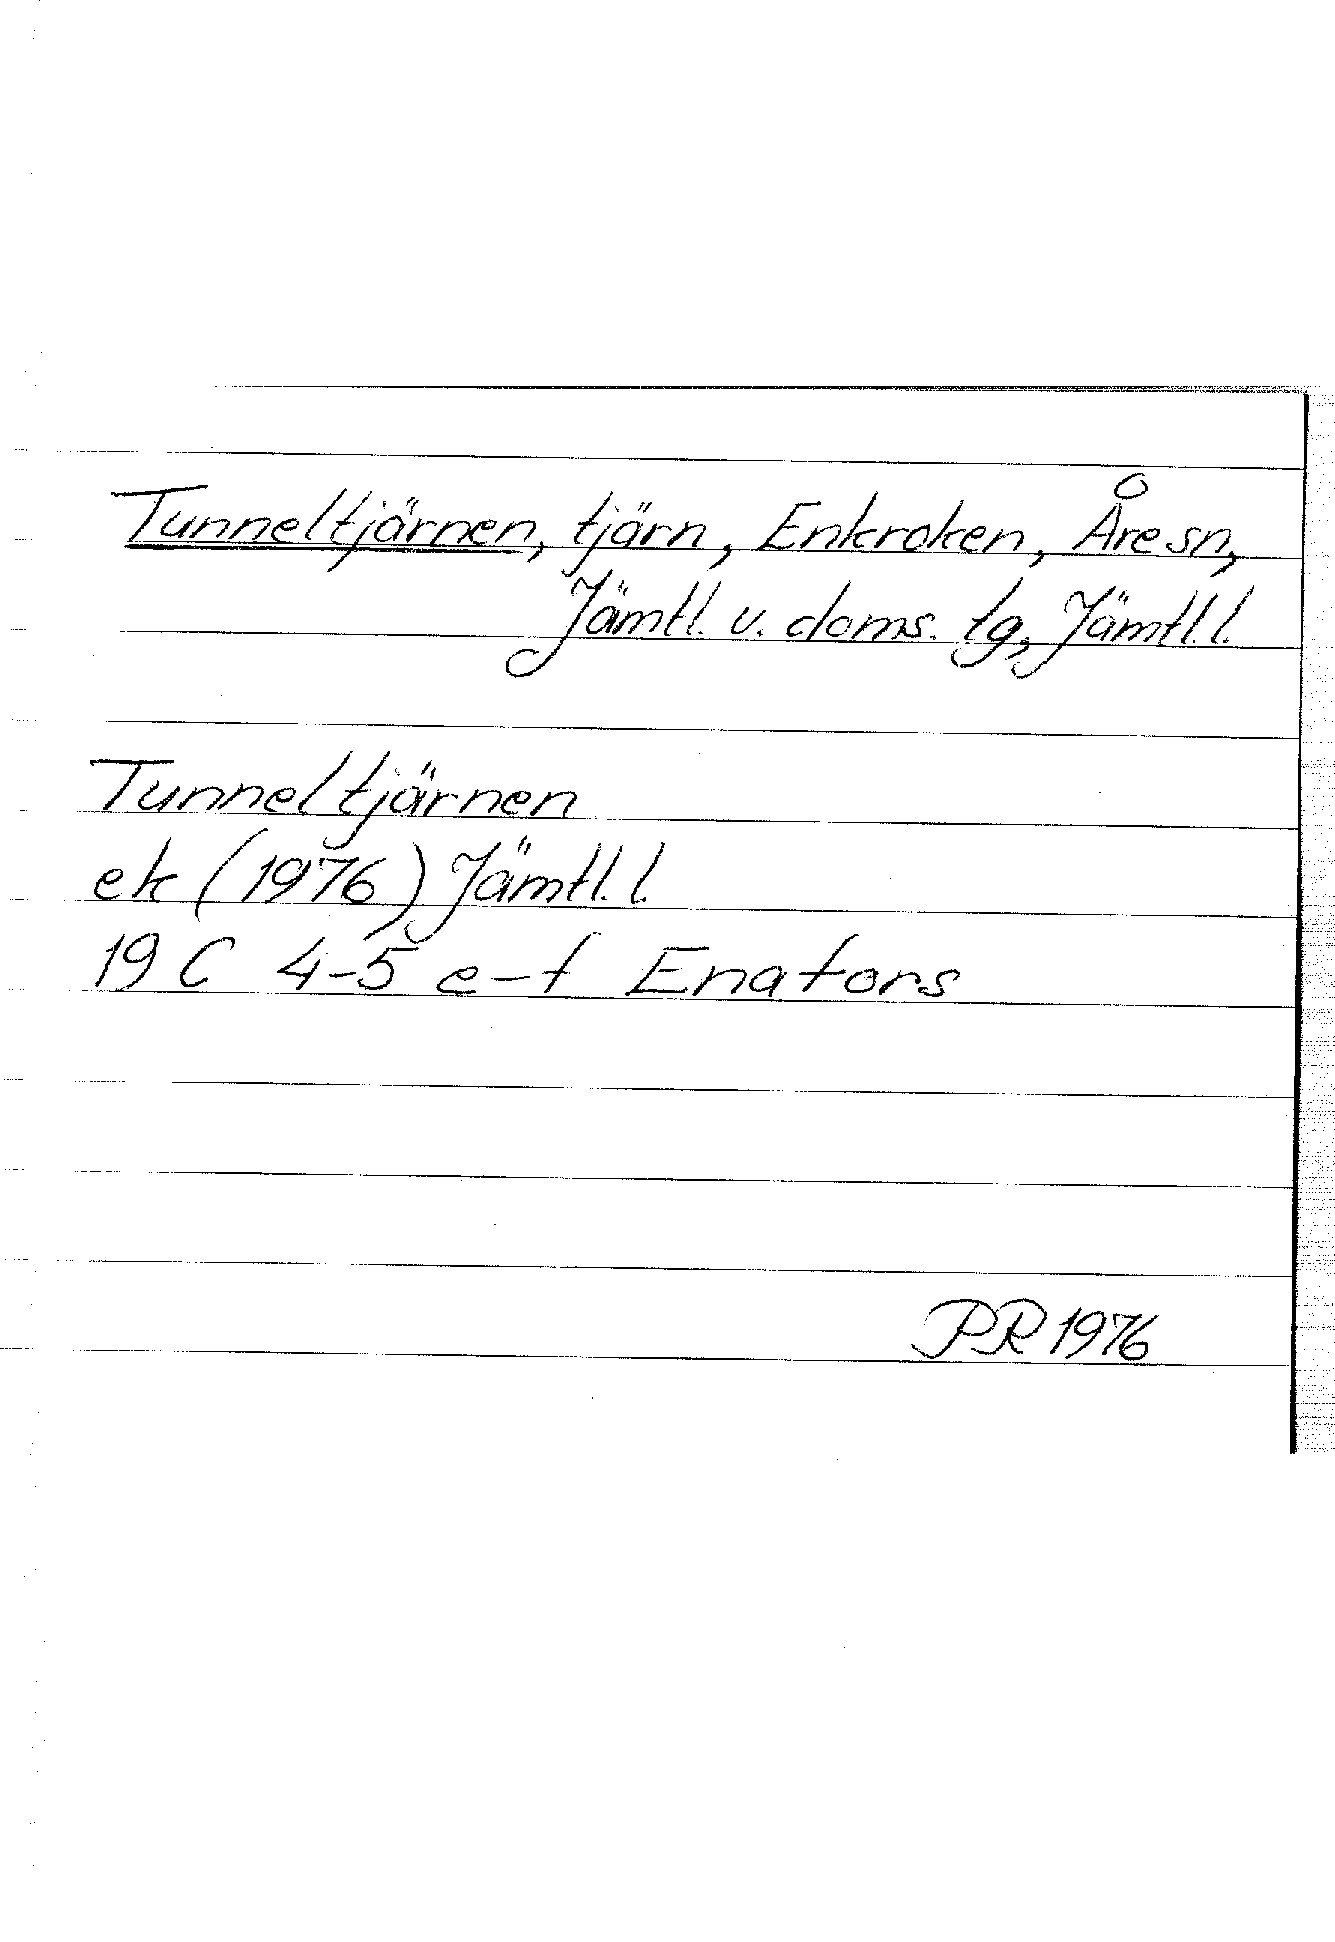 Tunneltjärnen, tjärn, Enkroken, Åre sn,
Jämtl. v. doms. tg, Jämtl. l.
Tunneltjärnen
ek (1976) Jämtl. l.
19 C 4-5 e-f Enafors
PR 1976